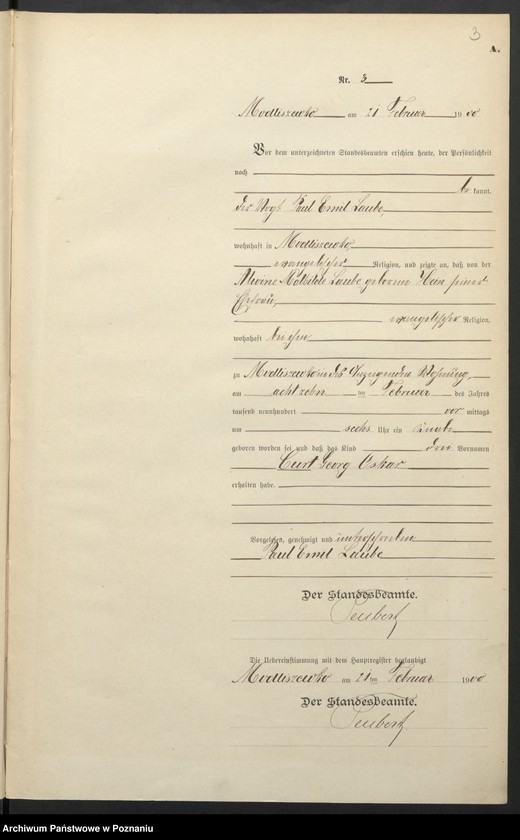 3
A.
Nr. 3
Modliszewko am 21 Februar 1900
Vor dem unterzeichneten Standesbeamten erschien heute, der Persönlichkeit
nach
be kannt,
der Vogt Paul Emil Laube,
wohnhaft in Modliszewko,
evangelischer Religion, und zeigte an, daß von der
Alwine Mathilde Laube geborenen Hein, seiner
Ehefrau,
evangelischer Religion,
wohnhaft bei ihm
zu Modliszewko in des Anzeigenden Wohnung,
am achtzehn ten Februar des Jahres
tausend neunhundert vor mittags
um sechs Uhr ein Knabe
geboren worden sei und daß das Kind den Vornamen
Curt Georg Oskar
erhalten habe.
Vorgelesen, genehmigt und unterschrieben
Paul Emil Laube
Der Standesbeamte.
Die Uebereinstimmung mit dem Hauptregister beglaubigt
Modliszewko am 21 ten Februar 1900
Der Standesbeamte.
Archiwum Państwowe w Poznaniu